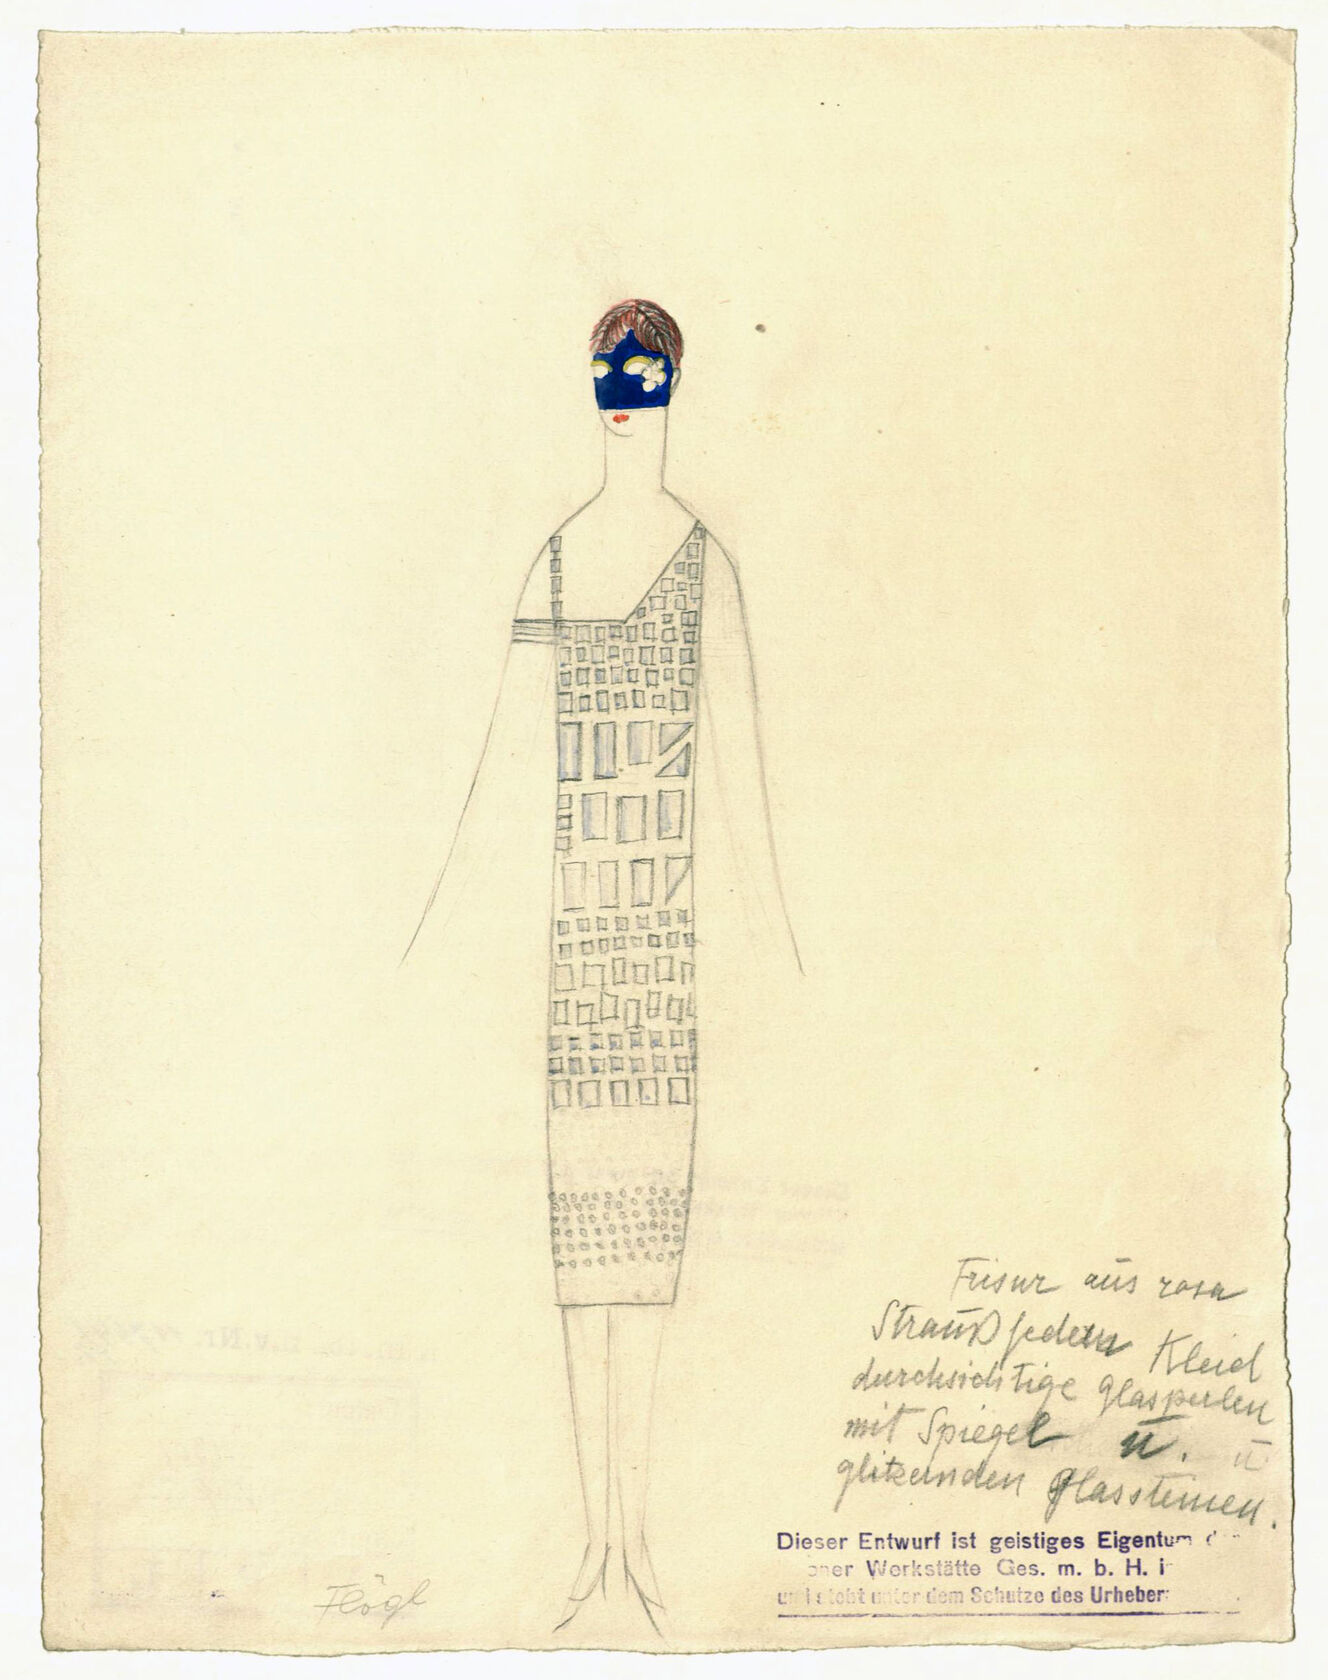 Frisur aus rosa
Straußfedern Kleid
durchsichtige Glasperlen
mit Spiegel u. u
glitzernden Glassteinen.
Dieser Entwurf ist geistiges Eigentum d
ener Werkstätte Ges. m. b. H. i
und steht unter dem Schutze des Urheber
Flögl